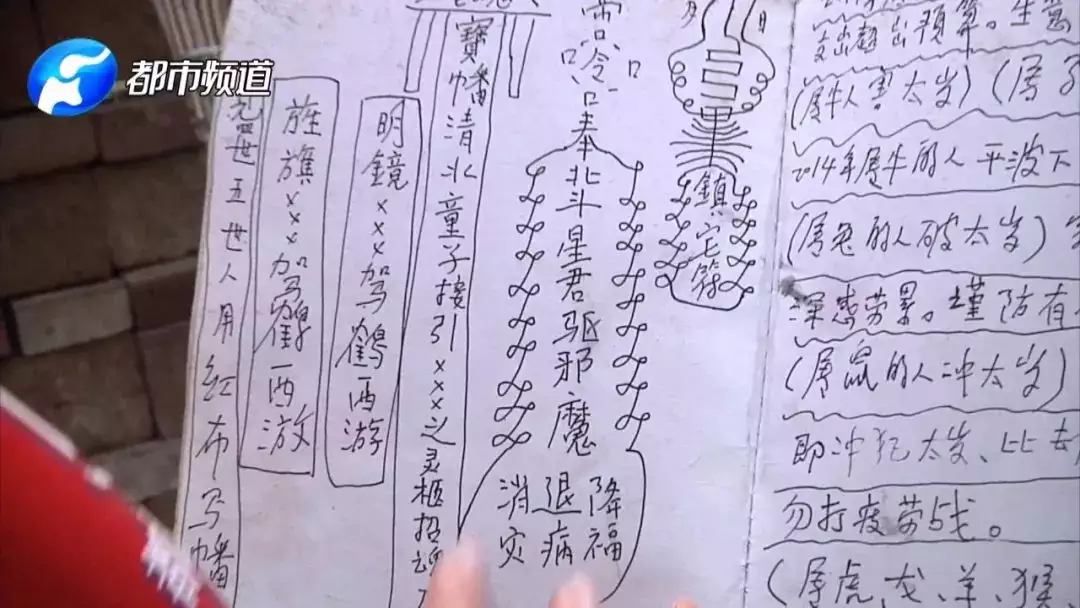 都市频道
世五世人用红布写幡
旌旗×××驾鹤西游
明鏡×××驾鹤西游
寶幡清北童子接引×××之灵柩招魂
奉北斗星君驱邪魔
消退降
灾病福
月
日
鎮宅符
支出超出预算。生意
(属牛人害太岁)(属
2014年属牛的人平波下
(属兔的人破太岁)
深感劳累。谨防有
(属鼠的人冲太岁)
即冲犯太岁、比
勿打疲劳战。
(属虎、龙、羊、猴、